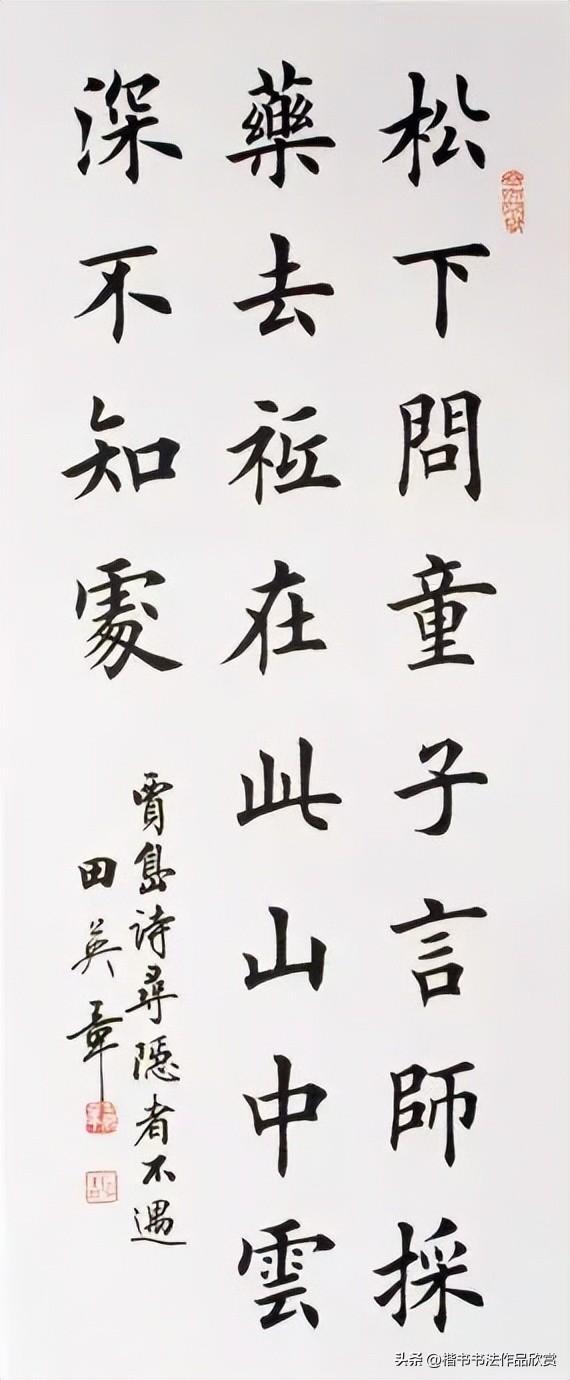 松下問童子言師採
藥去祗在此山中雲
深不知處
賈島诗尋隠者不遇
田英章
头条 @楷书书法作品欣赏